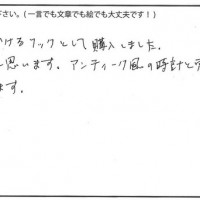 下さい。(一言でも文章でも絵でも大丈夫です！)
けるフックとして購入しました.
と思います。アンティーク風の時計と
ます。